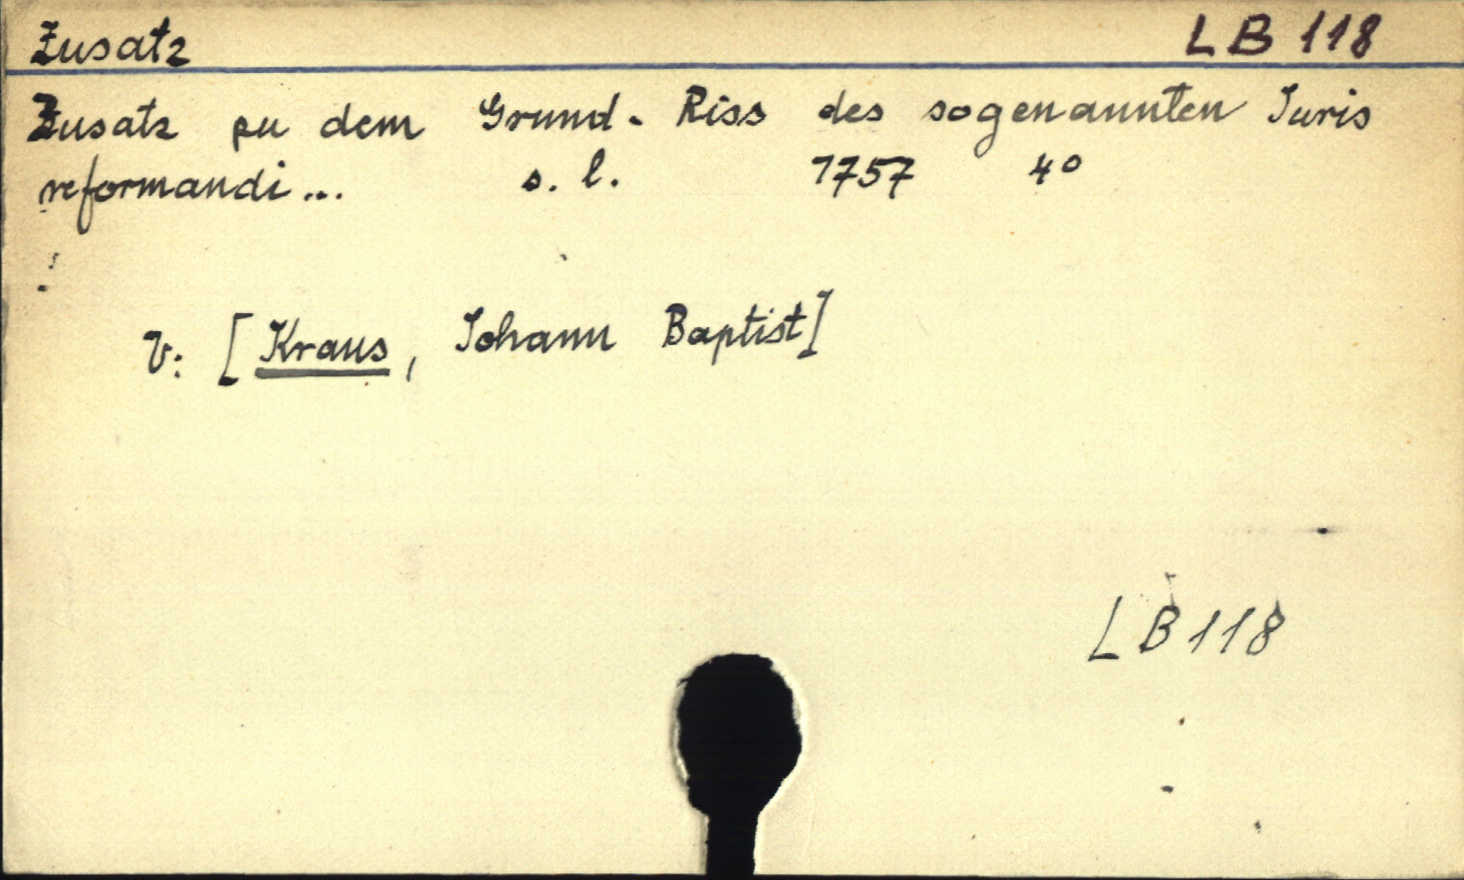 Zusatz LB 118
Zusatz zu dem Grund-Riss des sogenannten Iuris
reformandi... s. l. 1757 4°
V: [Kraus, Johann Baptist]
LB 118